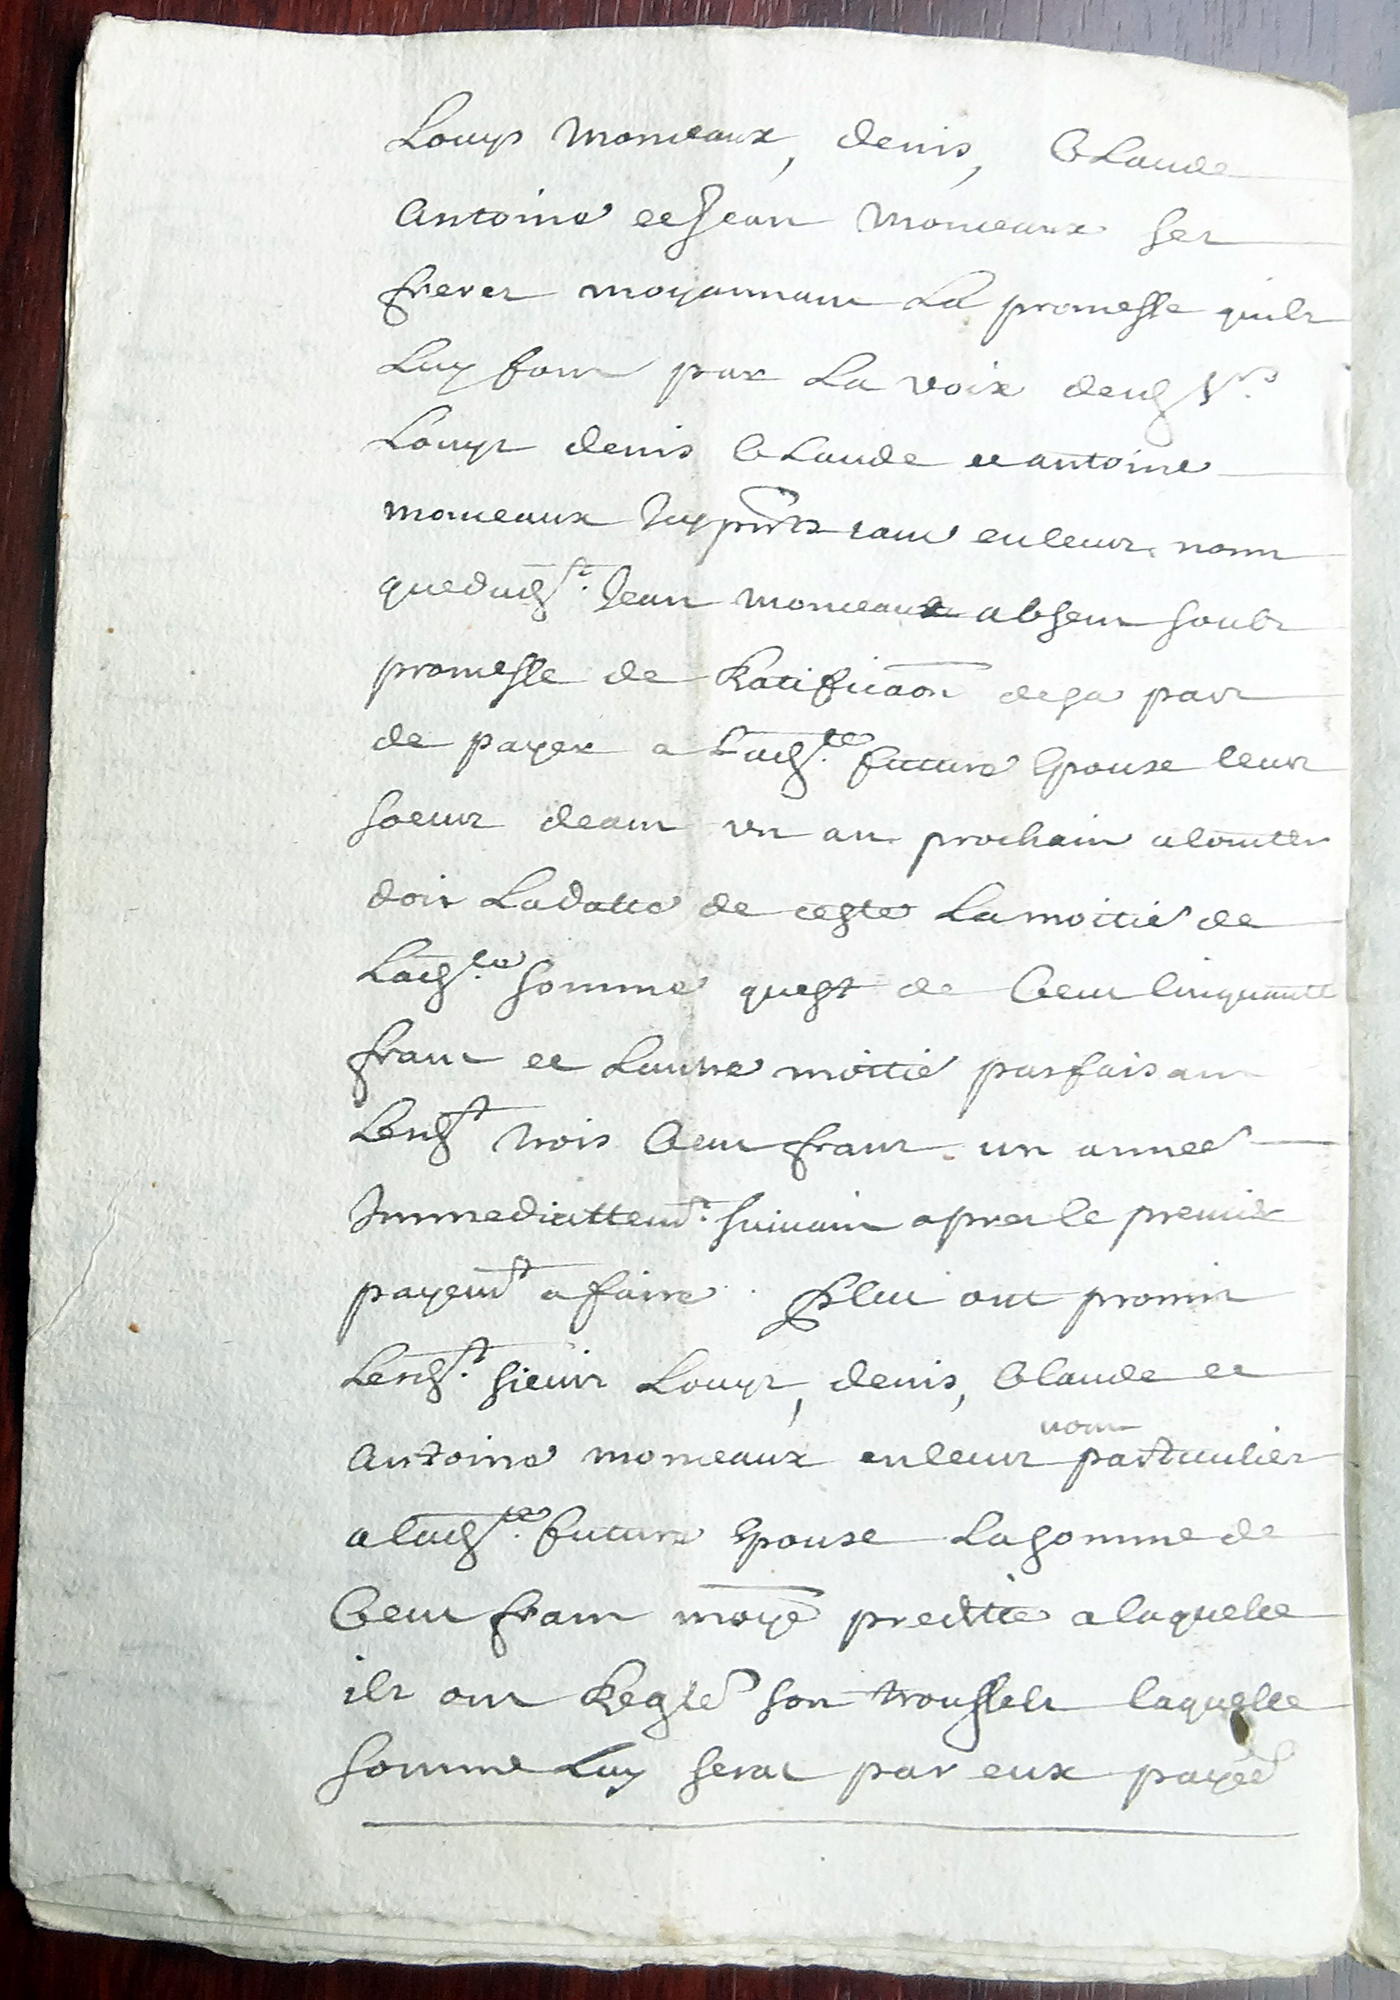 Louys Monceaux, denis, Claude
Antoine et Jean Monceaux ses
freres moyennant La promesse quils
Luy font par La voix desd Srs
Louys denis Claude et antoine
monceaux Icy pnts tant en leurs noms
que dudt Jean monceaux absent soubs
promesse de Ratificaon de sa part
de payer a Ladte future Epouse leur
soeur deans un an prochain a compter
dois La datte de ceste La moitié de
Ladte somme quest de Cent Cinquante
franc et Lautre moitié parfaisant
Lesdt trois Cent franc un année
Immediattemt suivant apres le premier
payemt a faire. Plus ont promis
Lesdt sieurs Louys, denis, Claude et
Antoine monceaux en leur nom particulier
a ladte future Epouse La somme de
Cent franc moye preditte a laquelle
ils ont Reglé son troussels laquelle
somme Luy serat par eux payée